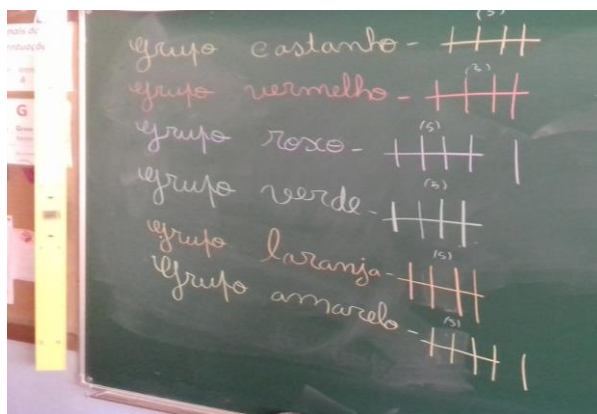 (5)
grupo castanho -
(5)
grupo vermelho -
(5)
grupo roxo -
(5)
grupo verde -
(5)
grupo laranja -
(5)
Grupo amarelo -
G